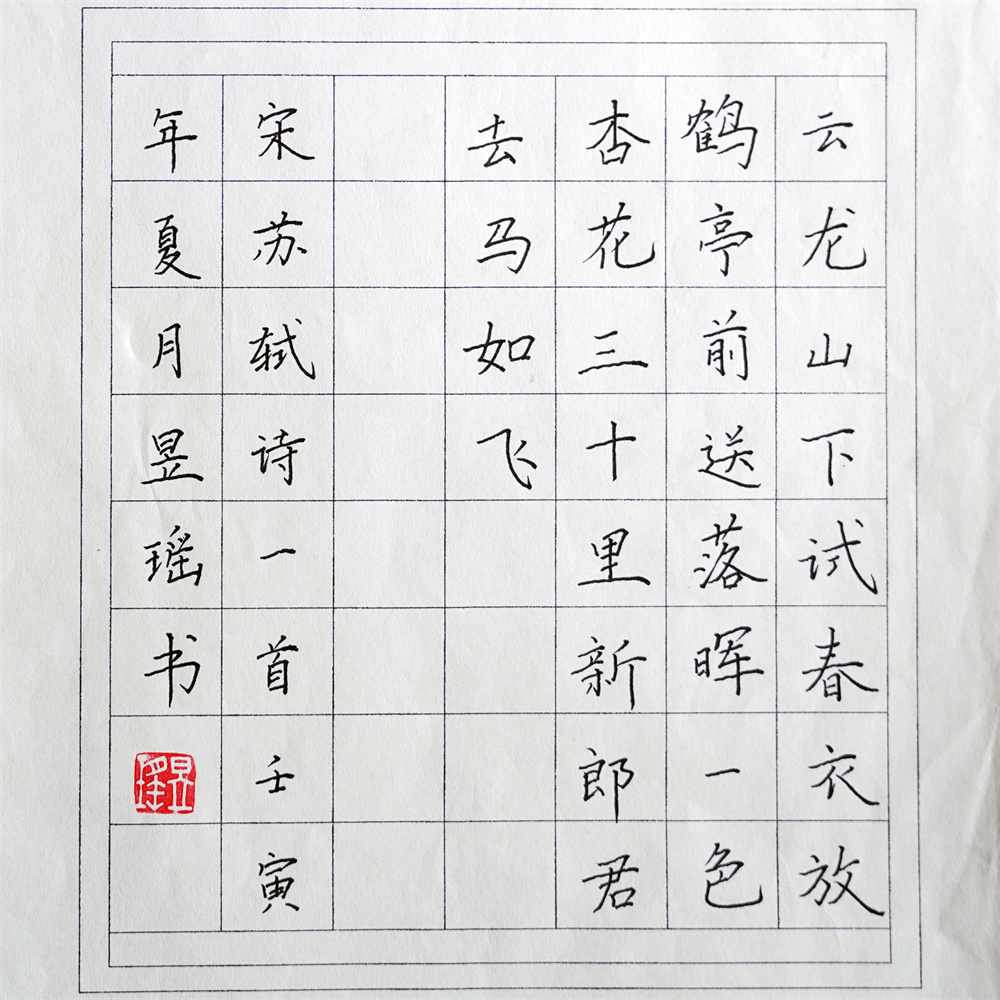 云龙山下试春衣放
鹤亭前送落晖一色
杏花三十里新郎君
去马如飞
宋苏轼诗一首壬寅
年夏月昱瑶书
昱瑶